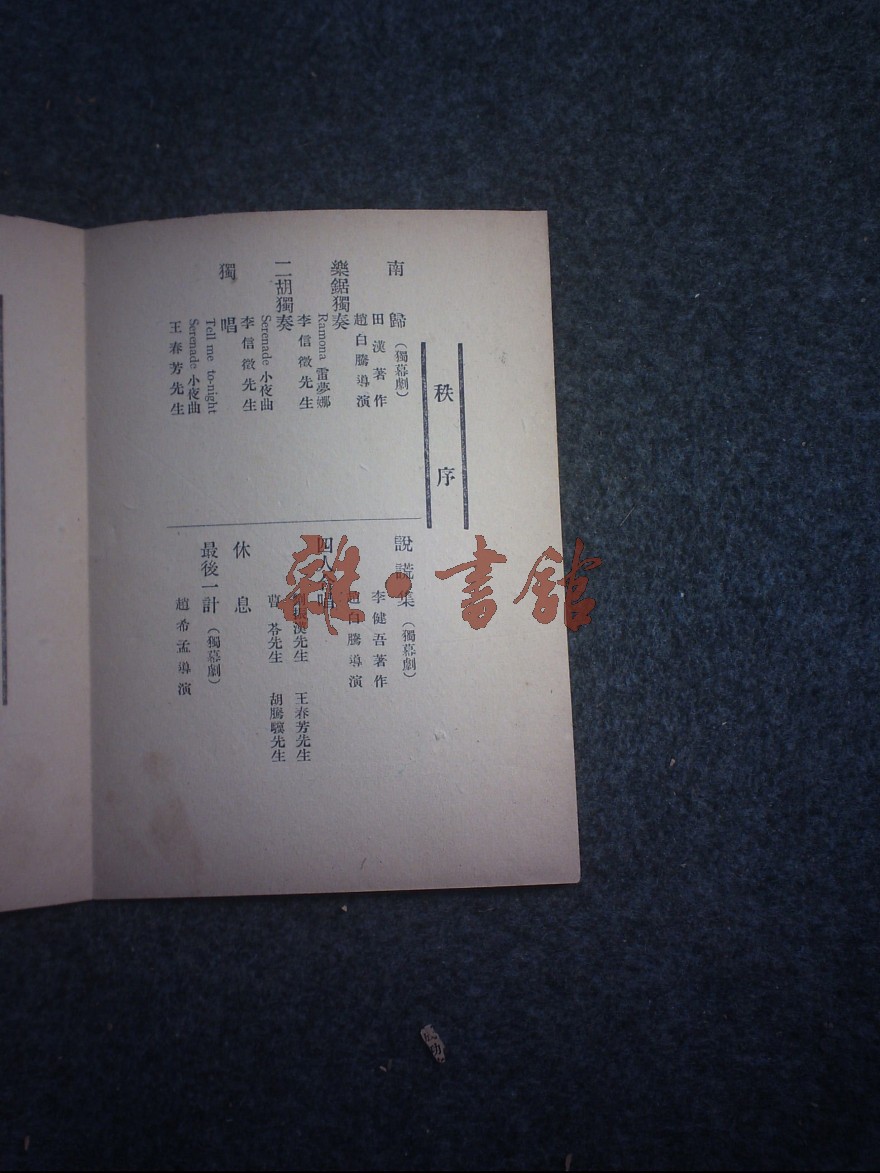 秩序
南歸（獨幕劇）
田漢著作
趙白騰導演
樂鋸獨奏
Ramona 雷夢娜
李信徵先生
二胡獨奏
Serenade 小夜曲
李信徵先生
獨唱
Tell me to-night
Serenade 小夜曲
王春芳先生
說謊集（獨幕劇）
李健吾著作
趙白騰導演
四人合唱
王春芳先生
苓先生 胡騰驤先生
休息
最後一計（獨幕劇）
趙希孟導演
雜·書館